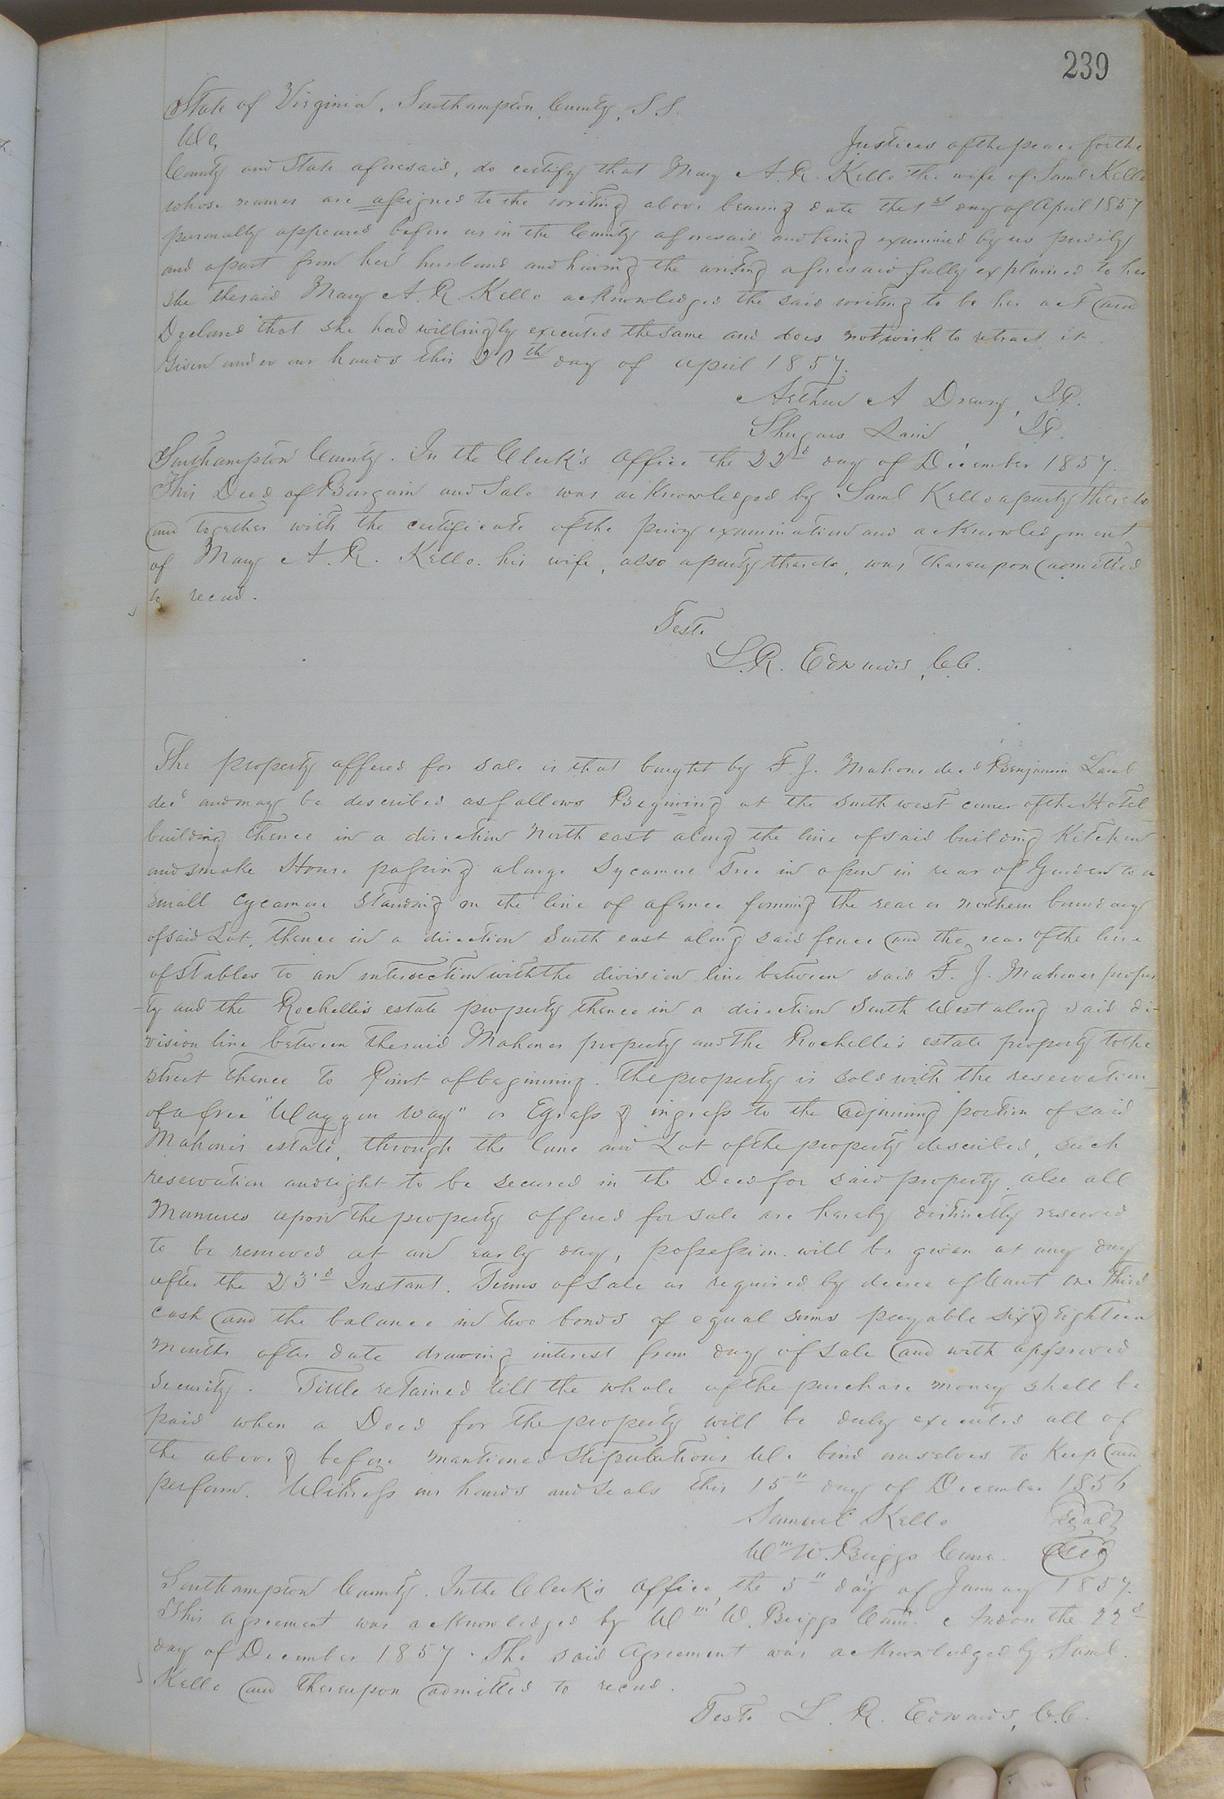 239
State of Virginia, Southampton County, S.S.
We, Justices of the peace for the
County and State aforesaid, do certify that Mary A. R. Kello the wife of Saml Kello
whose names are assigned to the writing above bearing date the 1st day of April 1857
personally appeared before us in the County aforesaid and being examined by us privily
and apart from her husband and having the writing aforesaid fully explained to her
She the said Mary A. R. Kello acknowledged the said writing to be her act and
Declared that she had willingly executed the same and does not wish to retract it.
Given under our hands this 20th day of april 1857.
Arthur A Drewry, J.P.
J.P.
Southampton County. In the Clerk's Office the 22d day of December 1857.
This Deed of Bargain and Sale was acknowledged by Saml Kello a party thereto
and together with the certificate of the privy examination and acknowledgment
of Mary A. R. Kello his wife, also a party thereto, was thereupon admitted
to record.
Teste
L. R. Edwards, C.C.
The property offered for sale is that bought by F. J. Mahone decd Benjamin Lamb
decd and may be described as follows Begining at the south west corner of the Hotel
building thence in a direction North east along the line of said building Kitchen
and smoke House passing a large Sycamore Tree in in rear of Garden to a
small Cycamore Standing on the line of a fence forming the rear or northern boundary
of said Lot, thence in a direction South east along said fence and the rear of the line
of Stables to an intersection with the division line between said F. J. Mahones proper-
ty and the Rochelle's estate property thence in a direction South West along said di-
vision line between the said Mahones property and the Rochelle's estate property to the
street thence to Point of beginning. The property is sold with the reservation
of a free "Waggon Way" or Egress & ingress to the adjoining portion of said
Mahone's estate, through the lane and Lot of the property described, such
reservation and right to be secured in the Deed for said property also all
Manures upon the property offered for sale are hereby distinctly reserved
to be removed at an early day, possession will be given at any day
after the 23d Instant. Terms of Sale as required by decree of Court one third
cash and the balance in two bonds of equal sums payable six & eighteen
months after date drawing interest from day of sale and with approved
security. Tittle retained till the whole of the purchase money shall be
paid when a Deed for the property will be duly executed all of
the above & before mentioned Stipulations We bind ourselves to Keep and
perform. Witness our hands and seals this 15th day of December 1856
Samuel Kello Seal
Wm W. Briggs Comr. Seal
Southampton County. In the Clerk's office, the 5th day of January 1857.
This agreement was acknowledged by Wm W. Briggs Comr. And on the 22d
day of December 1857. The said Agreement was acknowledged by Saml
Kello and thereupon admitted to record.
Teste L. R. Edwards, C.C.